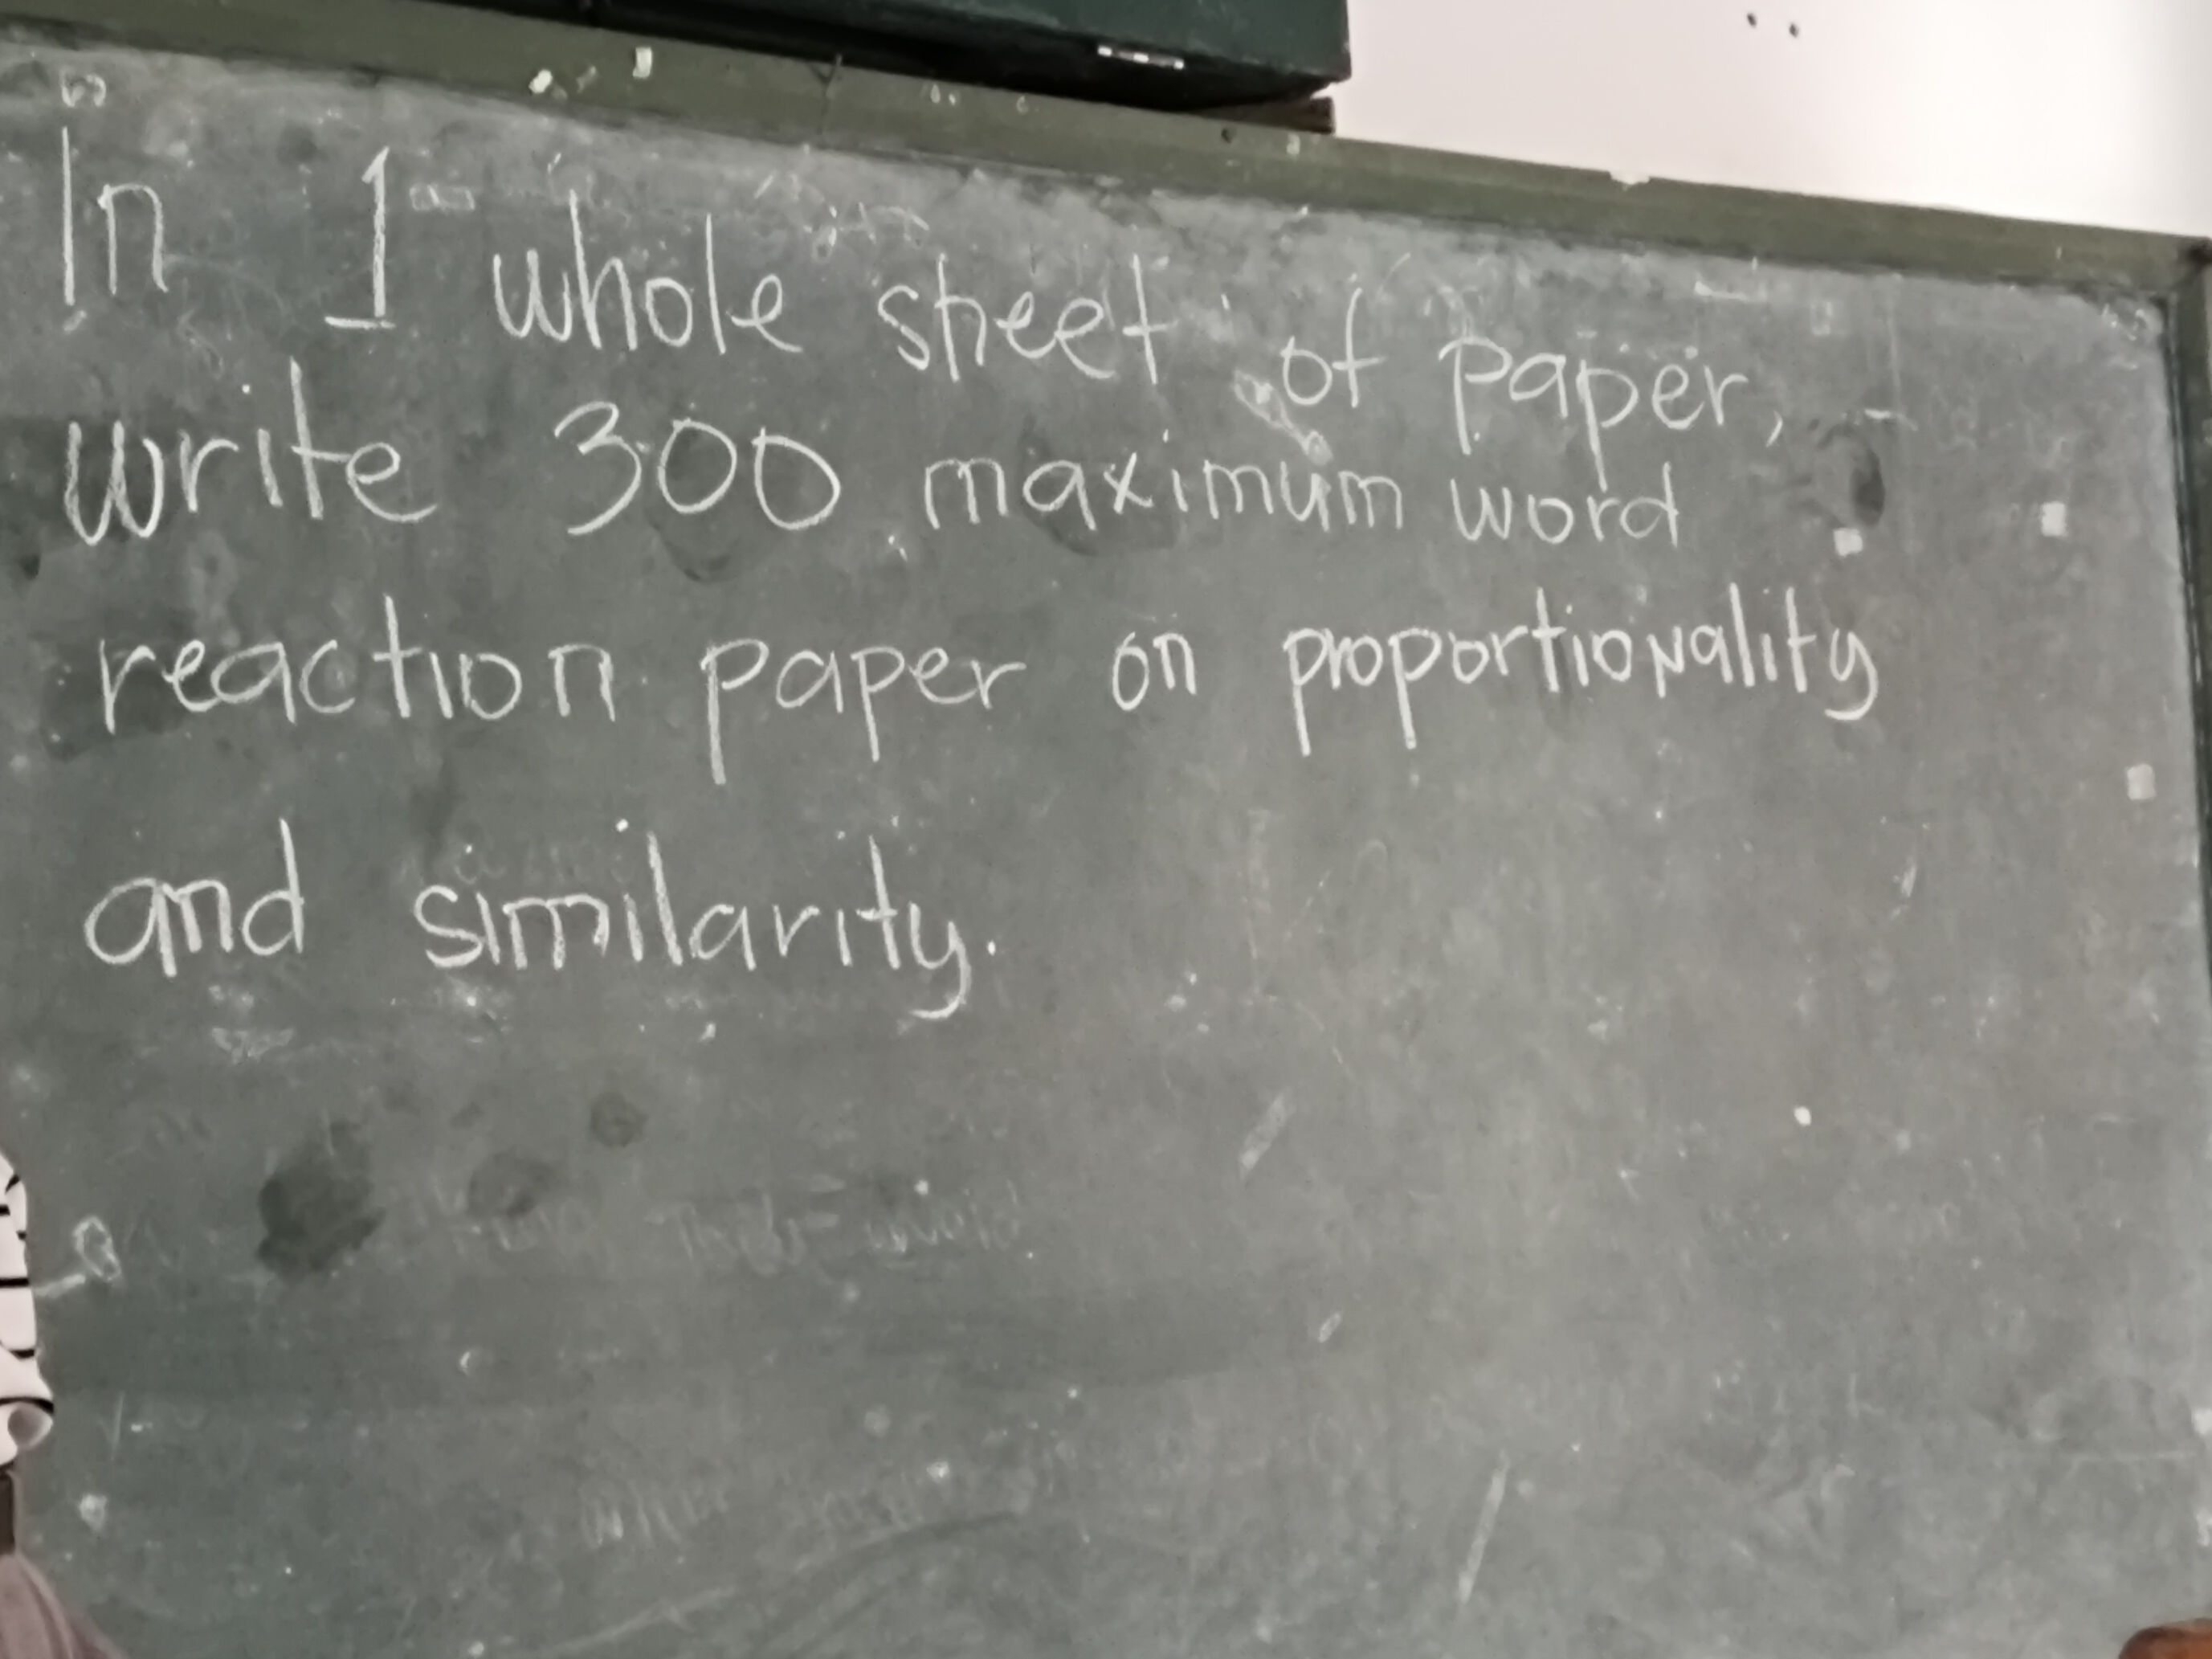 In 1 whole sheet of paper,
write 300 maximum word
reaction paper on proportionality
and similarity.